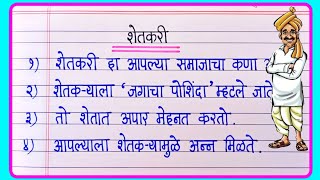 शेतकरी
१) शेतकरी हा आपल्या समाजाचा कणा
२) शेतकऱ्याला 'जगाचा पोशिंदा' म्हटले जाते
३) तो शेतात अपार मेहनत करतो.
४) आपल्याला शेतकऱ्यामुळे अन्न मिळते.